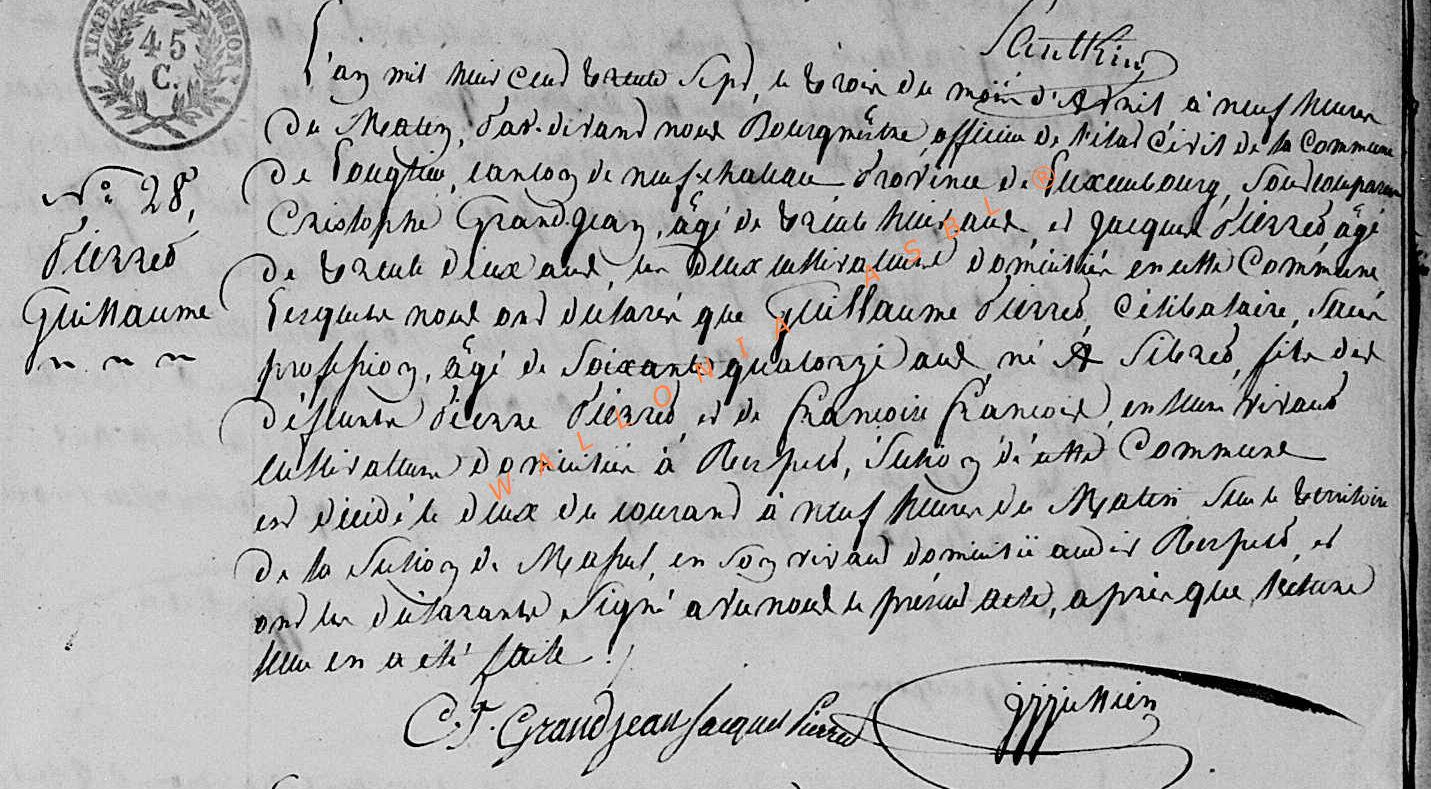 TIMBRE
45
C.
L'an mil huit cent trente sept, le trois du mois d'Avril, à neuf heures
du Matin, Par-devant nous Bourgmêstre, officier de l'état Civil de la Commune
de Longlier, canton de neufchateau Province de Luxembourg, Sont comparu
Cristophe Grandjean, âgé de trente huit ans, et Jacques Pierret âgé
de trente deux ans, les deux cultivateurs domiciliés en cette Commune
Lesquels nous ont déclarés que Guillaume Pierret, Célibataire, Sans
profession, âgé de Soixante quatorze ans, né A Sibret, fils des
défunts Pierre Pierret et de François François, en leurs vivans
cultivateurs domiciliés à Respelt, Section d'cette Commune
est décédé le deux du courant à neuf heures du Matin Sur le territoire
de la Section de Massul, en son vivant domicilié audit Respelt, et
ont les déclarants Signé avec nous le présent acte, après que lecture
leur en a été faite.
C. J. Grandjean Jacques Pierret
N.° 28,
Pierret
Guillaume
WALLONIA ASBL ®